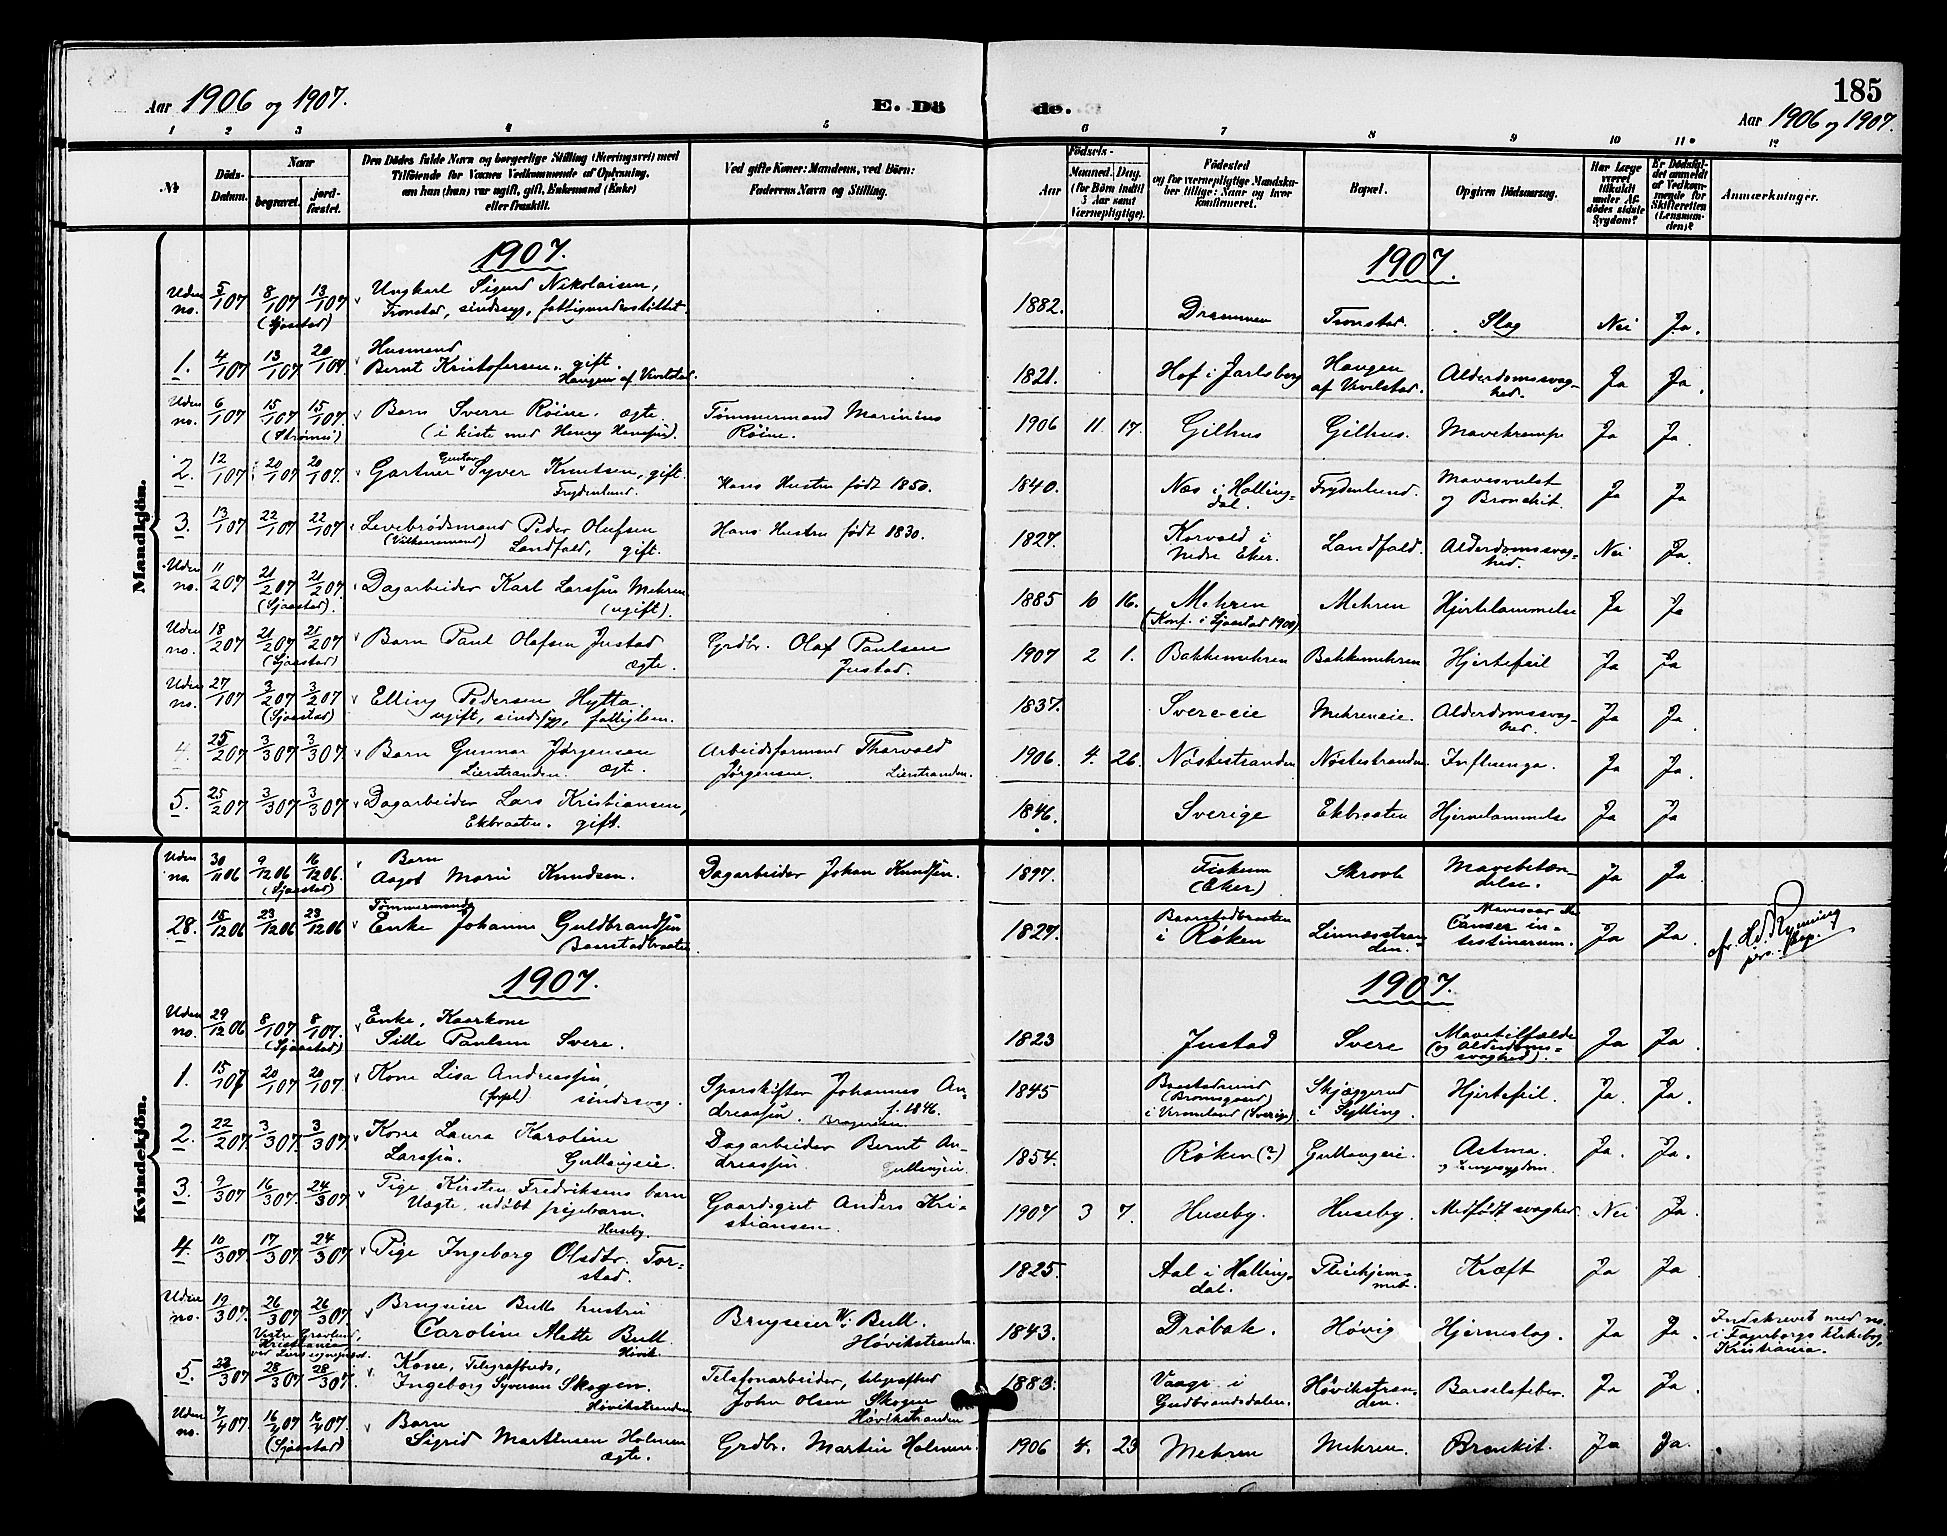 185
Aar 1906 og 1907. E. Dö de. Aar 1906 og 1907.
1 2 3 4 5 6 7 8 9 10 11 12
№ Döds-Datum. Naar begravet. jordfæstet. Den Dödes fulde Navn og borgerlige Stilling (Næringsvei) med Tilföiende for Voxnes Vedkommende af Oplysning, om han (hun) var ugift, gift, Enkemand (Enke) eller fraskilt. Ved gifte Koner: Mandens, ved Börn: Faderens Navn og Stilling. Födsels- Aar Maaned. Dag. (for Börn indtil 3 Aar samt Værnepligtige). Födested og for værnepligtige Mandskaber tillige: Naar og hvor konfirmeret. Bopæl. Opgiven Dödsaarsag. Har Læge været tilkaldt under Afdödes sidste Sygdom? Er Dödsfaldet anmeldt af Vedkommende for Skifteretten (Lensmanden)? Anmærkninger.
Mandkjön.
1907. 1907.
Uden no. 5/1 07 8/1 07 (Sjaastad) 13/1 07 Ungkarl Sigurd Nikolaisen, Tronstad, sindssyg, fattigunderstöttet. 1882. Drammen Tronstad. Slag Nei Ja.
1. 4/1 07 13/1 07 20/1 07 Husmand Bernt Kristofersen, gift. Haugen af Vivelstad. 1821. Hof i Jarlsberg Haugen af Vivelstad. Alderdomssvaghed. Ja Ja.
Uden no. 6/1 07 15/1 07 (Strömsö) 15/1 07. Barn Sverre Röine. ægte. (i kiste med Henry). Tømmermand Marinius Röine. 1906 11 17. Gilhus Gilhus. Mavekrampe Ja Ja.
2. 12/1 07 20/1 07 20/1 07. Gartner Gustav Syver Knutsen, gift. Frydenlund. Hans Hustru født 1850. 1840. Næs i Hallingdal. Frydenlund. Mavesvulst og Bronchit. Ja Ja
3. 13/1 07 22/1 07 22/1 07 Levebrødsmand (Vilkaarsmand) Peder Olufsen Landfald, gift. Hans Hustru født 1830. 1827. Korvald i Nedre Eker. Landfald. Alderdomssvaghed. Nei Ja.
Uden no. 11/2 07 21/2 07 (Sjaastad) 21/2 07. Dagarbeider Karl Larssen Mehren (ugift). 1885 10 16. Mehren (Konf. i Sjaastad 1900) Mehren Hjertelammelse Ja Ja
Uden no. 18/2 07 21/2 07 (Sjaastad) 21/2 07 Barn Paul Olafsen Justad ægte. Grdbr. Olaf Paulsen Justad. 1907 2 1. Bakkemehren Bakkemehren Hjertefeil Ja Ja
Uden no. 27/1 07 3/2 07 (Sjaastad) 3/2 07 Elling Pedersen Hytta. ugift, sindssyg, fattiglem. 1837. Svere-eie Mehreneie. Alderdomssvaghed. Ja Ja.
4. 25/2 07 3/3 07 3/3 07 Barn Gunnar Jørgensen Lierstranden. ægte. Arbeidsformand Thorvald Jørgensen. Lierstranden. 1906. 4. 26. Nöstestranden Nöstestranden Influenza. Ja Ja.
5. 25/2 07 3/3 07 3/3 07. Dagarbeider Lars Kristiansen, Ekbraaten. gift. 1846. Sverige Ekbraaten Hjernelammelse Ja Ja
Kvindekjön.
Uden no. 30/11 06 9/12 06 (Sjaastad) 16/12 06. Barn Aagot Marie Knudsen. Dagarbeider Johan Knudsen. 1897. Fiskum (Eker) Skrovle Mavebetændelse. Ja Ja
28. 15/12 06 23/12 06 23/12 06 Tømmermands Enke Johanne Guldbrandsen Baarstadbraaten. 1827. Baarstadbraaten i Røken Linnæsstranden. Mavesaar Canser intestinorum. Ja Ja. cfr. Hr. Rynning pers. kap.
1907. 1907.
Uden no. 29/12 06 8/1 07 (Sjaastad) 8/1 07. Enke, Kaarkone Sille Paulsen Svere. 1823 Justad Svere Mavetilfælde (og Alderdomssvaghed). Ja Ja.
1. 15/1 07 20/1 07 20/1 07. Kone Lisa Andreassen, (forpl.) sindssvag. Sporskifter Johannes Andreassen. f. 1846. Bragernæs. 1845 i Vermeland (Sverige) Skjæggerud i Sylling. Hjertefeil. Ja. Ja.
2. 22/2 07 3/3 07. 3/3 07 Kone Laura Karoline Larssen. Gullaugeie. Dagarbeider Bernt Andreassen. Gullaugeie. 1854. Røken (?) Gullaugeie. Astma og Lungesygdom. Ja. Ja.
3. 9/3 07 16/3 07. 24/3 07 Pige Kirsten Fredriksens barn Uægte, udøbt pigebarn. Huseby. Gaardsgut Anders Kristiansen. 1907 3 7. Huseby. Huseby. Medfödt svaghed. Nei Ja.
4. 10/3 07. 17/3 07. 24/3 07 Pige Ingeborg Olsdtr. Torstad. 1825. Aal i Hallingdal. Pleiehjemmet. Kræft Ja Ja.
Uden no. 19/3 07. 26/3 07 26/3 07. Vestre Gravlund, Kristiania Brugseier Bulls hustru Caroline Alette Bull. Høvik. Brugseier W. Bull. Høvikstranden. 1843. Dröbak. Høvig Hjerneslag. Ja Ja. Indskrevet med no. i Fagerborgs kirkebog, Kristiania.
5. 28/3 07 28/3 07. Kone, Telegrafbuds, Ingeborg Syversen Skogen. Høvikstranden Telefonarbeider, telegrafbud John Olsen Skogen Høvikstranden 1883. Vaage i Gudbrandsdalen. Høvikstranden. Barselsfeber. Ja Ja.
Uden no. 7/4 07 16/4 07 (Sjaastad) 16/4 07. Barn Sigrid Martinsen Holmen ægte. Grdbr. Martin Holmen. 1906 4. 23 Mehren Mehren. Bronkit. Ja Ja.